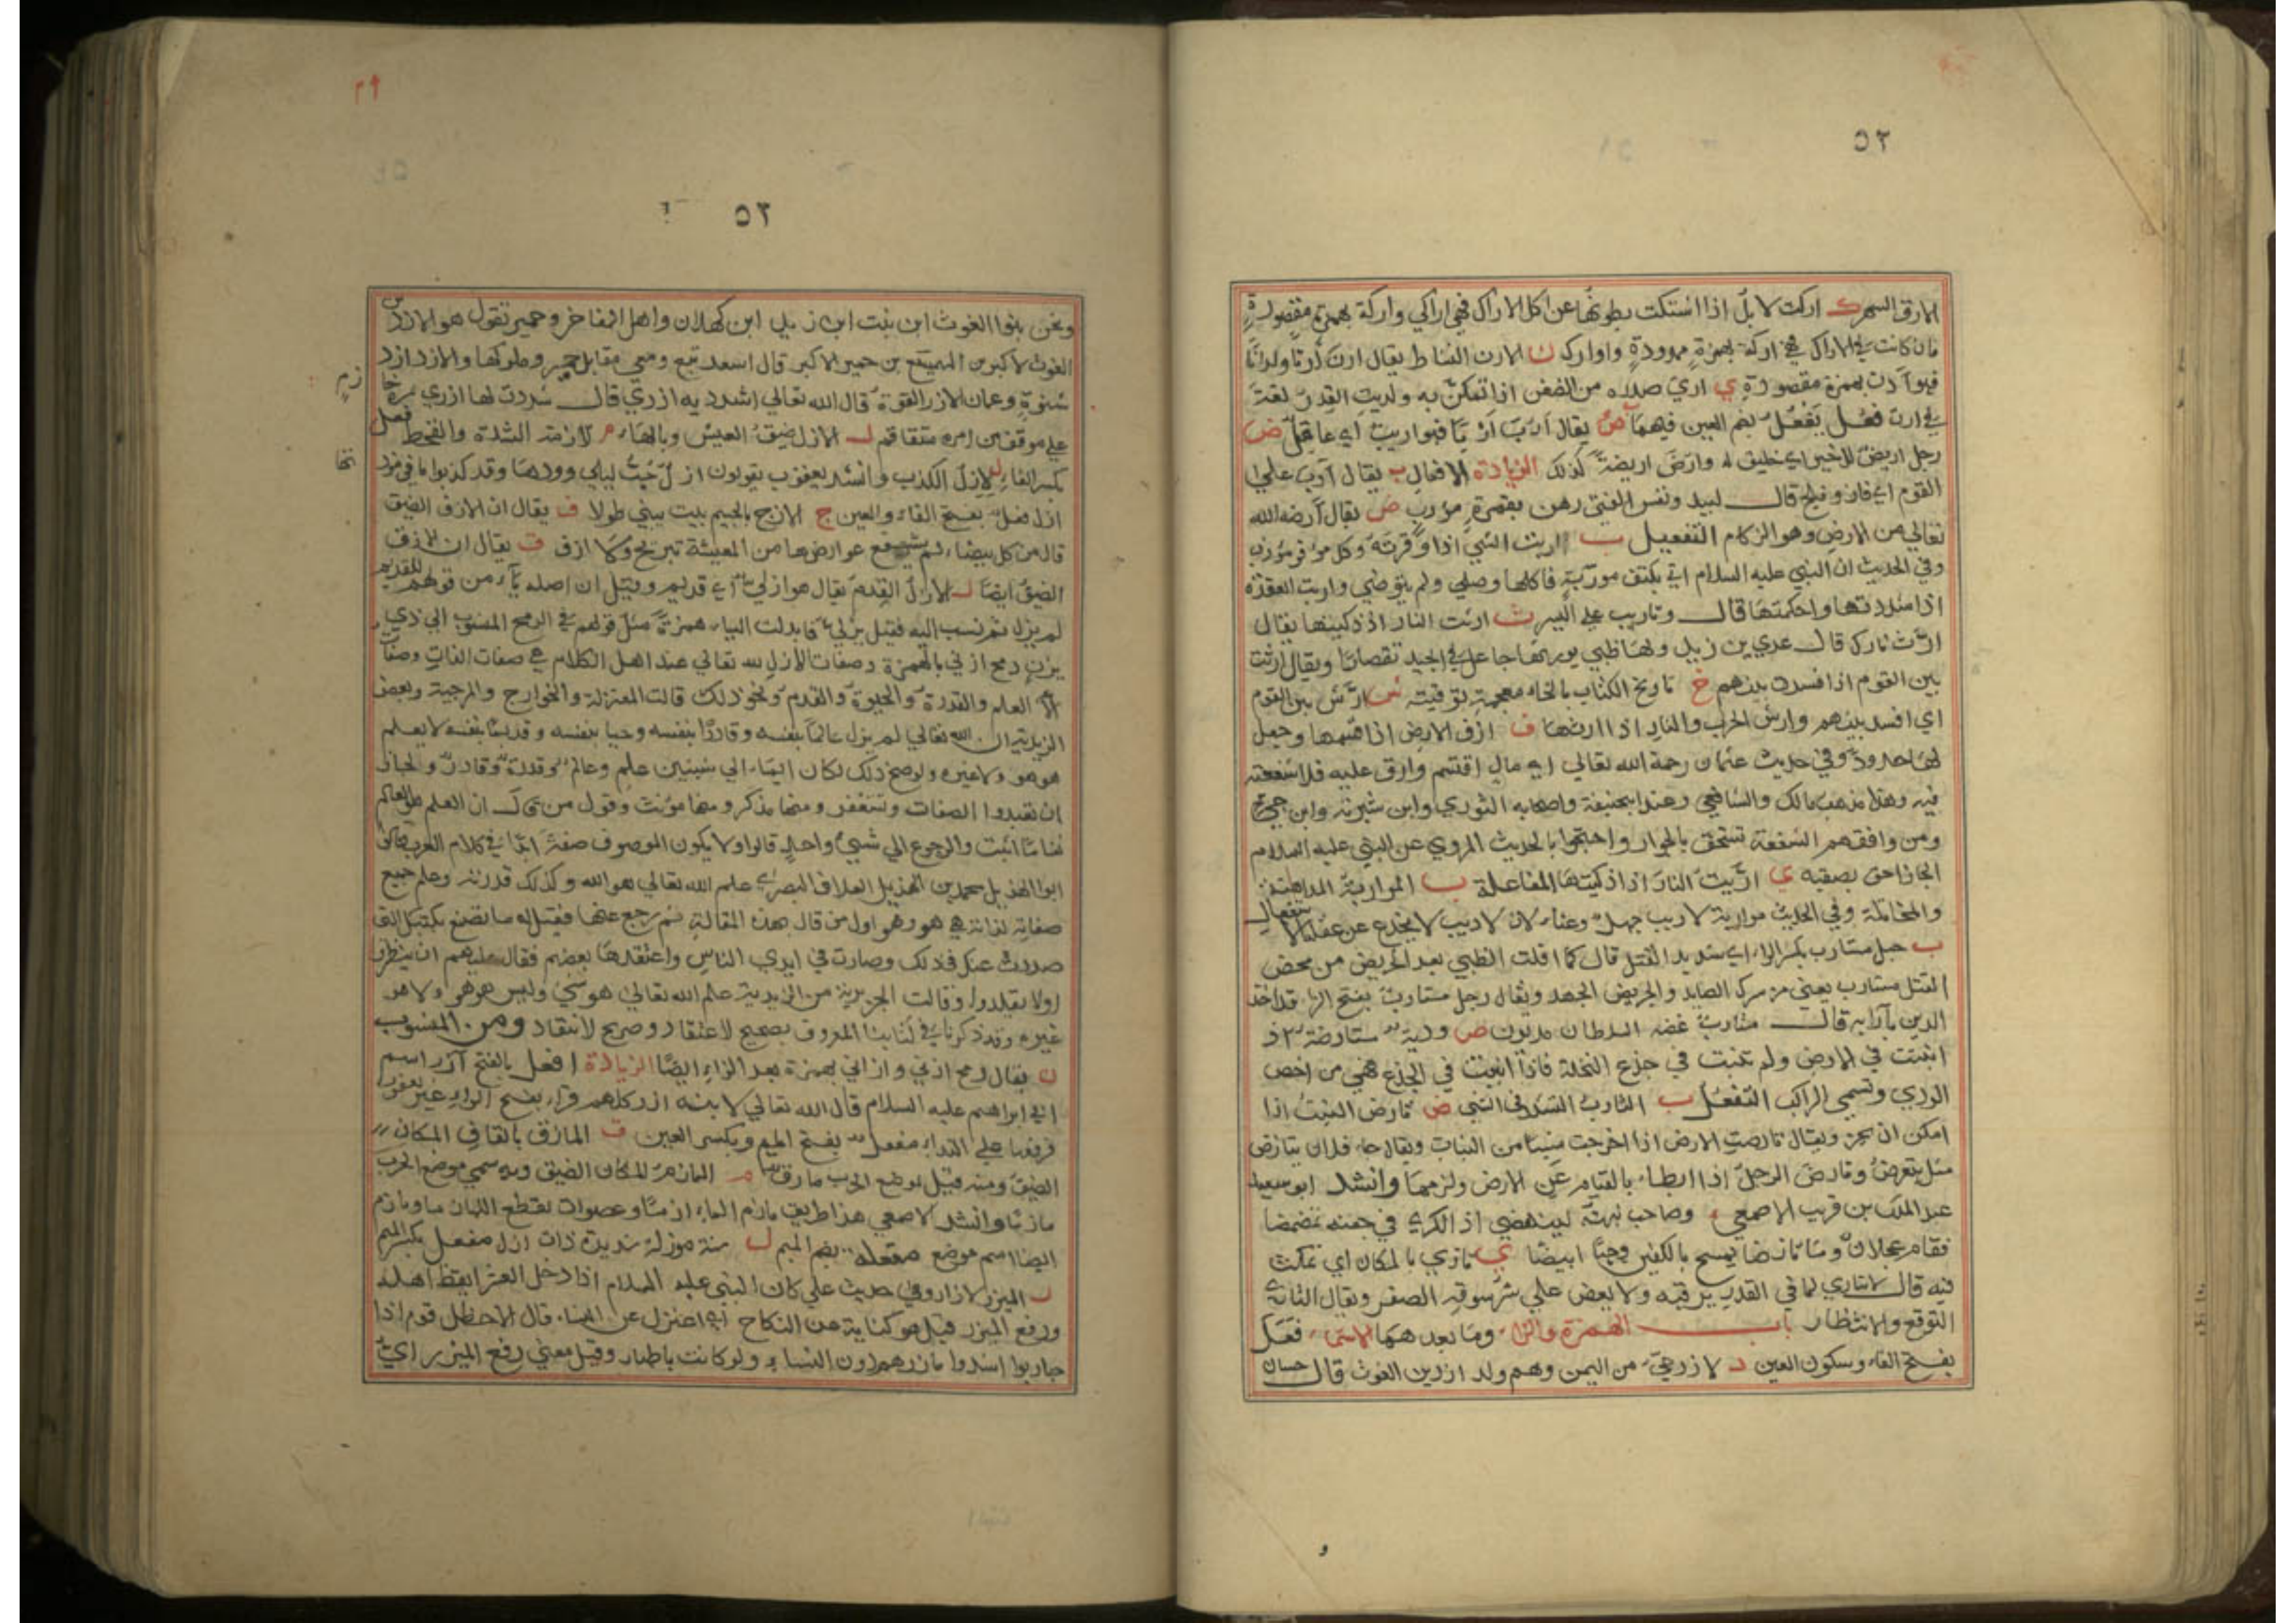 ٥٢
الارق السهر ك اركت الابل اذا اشتكت بطونها عن اكل الاراك فهي اراكي واركة بهمزة مقصورة
فان كانت في الاراك فهي اركة بهمزة ممدودة واوارك ن الارن النشاط يقال ارن ارنا وارانا
فهو آرن بهمزة مقصورة ي اري صدره من الضغن اذا تمكن به واريت القدر لغة
في ارت فعل يفعل بضم العين فيهما ب يقال ارب اربا فهو اريب اي عاقل ض
رجل اريض للخير اي خليق له وارض اريضة كذلك الزيادة الافعال ب يقال آرب علي
القوم اي فاز وفلج قال لبيد ونفس الفتى رهن بقمرة مؤرب ض يقال آرضه الله
تعالي من الارض وهو الزكام التفعيل ب اربت الشي اذا وفرته وكل موفر مؤرب
وفي الحديث ان النبي عليه السلام اتي بكتف موربة فاكلها وصلي ولم يتوضي واربت العقدة
اذا شددتها واحكمتها قال وتاريب علي اليسر ث ارثت النار اذا ذكيتها يقال
ارث نارك قال عدي بن زيد ولها ظبي يورثها جاعل في الجيد تقصارا ويقال ارثت
بين القوم اذا افسدت بينهم خ تاريخ الكتاب بالخاء معجمة توقيته ش ارش بين القوم
اي افسد بينهم وارش الحرب والنار اذا ارثها ف ارف الارض اذا قسمها وجعل
لها حدود وفي حديث عثمان رحمة الله تعالي اي مال اقتسم وارف عليه فلا شفعة
فيه وهذا مذهب مالك والشافعي وعند ابيحنيفة واصحابه الثوري وابن شبرمة وابن جي
ومن وافقهم الشفعة تستحق بالجوار واحتجوا بالحديث المروي عن النبي عليه السلام
الجار احق بصقبه ي اريت النار اذا ذكيتها المفاعلة ب المواربة المداهنة
والمخاتلة وفي الحديث مواربة الاريب جهل وعناء لان الاريب لا يخدع عن عقله الاستفعال
ب حبل مستارب بكسر الراء اي شديد الفتل قال كما افلت الظبي بعد الجريض من محض
الفتل مستارب يعني من شرك الصايد والجريض الجهد ويقال رجل مستارب بفتح الراء قد اخذ
الدين بآرابه قال مستارب عضه السلطان مديون ض ودية مستارضة اذا
انبتت في الارض ولم تنبت في جذع النخلة فاذا انبتت في الجذع فهي من اخص
الودي وتسمي الراكب التفعل ب التارب التشدد في الشي ض تارض النبت اذا
امكن ان يجز ويقال تارضت الارض اذا اخرجت شيئا من النبات ويقال جاء فلان يتارض
مثل يتعرض وتارض الرجل اذا ابطاء بالقيام عن الارض ولزمها وانشد ابو سعيد
عبد الملك بن قريب الاصمعي وصاحب نبهته لينهضي اذا الكرى في جفنه تمضمضا
فقام عجلان وما تارضا يمسح بالكفين وجها ابيضا ي تاري بالمكان اي تمكث
فيه قال لا يتاري لما في القدر يرقبه ولا يعض علي شرسوفه الصفر ويقال التاري
التوقع والانتظار باب الهمزة والزاء وما بعدهما الاسماء فعل
بفتح الفاء وسكون العين د الازد حي من اليمن وهم ولد ازد بن الغوث قال حسان
٥٢
ونحن بنوا الغوث ابن بنت ابن زيد ابن كهلان واهل المفاخر وحمير تقول هو الازد بن
الغوث الاكبر بن الهميسع بن حمير الاكبر قال اسعد تبع ومعي مقابل حمير وملوكها والازد ازد
شنوة وعمان الازر القوة قال الله تعالي اشدد به ازري قال شددت لها ازري مرة
علي موقف من امره متفاقم ل الازل ضيق العيش وبالهاء م الازمة الشدة والقحط فعل
بكسر الفاء ل الازل الكذب وانشد يعقوب يقولون ازل حب ليلي وودها وقد كذبوا ما في مود
ازل فعل بفتح الفاء والعين ج الازج بالجيم بيت يبني طولا ف يقال ان الازف الضيق
قال من كل بيضاء لم يشفع عوارضها من المعيشة تبريح ولا ازف ق يقال ان الازق
الضيق ايضا ل الازل القدم يقال هو ازلي اي قديم وقيل ان اصله ياء من قولهم للقديم
لم يزل ثم نسب اليه فقيل يزلي فابدلت الياء همزة مثل قولهم في الرمح المنسوب الي ذي
يزن رمح ازني بالهمزة وصفات الازل لله تعالي عند اهل الكلام هي صفات الذات وصفات
العلم والقدرة والحيوة والقدم ونحو ذلك قالت المعتزلة والخوارج والمرجية وبعض
الزيدية ان الله تعالي لم يزل عالما بنفسه وقادرا بنفسه وحيا بنفسه وقديما بنفسه لا بعلم
هو هو ولا غيره ولو صح ذلك لكان ايماء الي شيئين علم وعالم وقدرة وقادر ولجاز
ان تعبدوا الصفات وتستغفر ومنها مذكر ومنها مؤنث وقول من قال ان العلم هو العالم
والرجوع الي شيئ واحد قالوا ولا يكون الموصوف صفة في كلام العرب
ابوا الهذيل محمد بن الهذيل العلاف البصري علم الله تعالي هو الله وكذلك قدرته وعلم جميع
صفاته لذاته هي هو وهو اول من قال بهذه المقالة ثم رجع عنها فقيل له ما تصنع بكتبك التي
صدرت عنك في ذلك وصارت في ايدي الناس واعتقدها بعضهم فقال عليهم ان ينظروا
ولا يقلدوا وقالت الجريرية من الزيدية علم الله تعالي هو شيئ وليس هو هو ولا هو
غيره وقد ذكرناه في كتابنا المعروف بصحيح الاعتقاد وصريح الانتقاد ومن المنسوب
ن يقال رمح ازني وازاني بهمزة بعد الزاء ايضا الزيادة افعل بالفتح آزر اسم
ابي ابراهيم عليه السلام قال الله تعالي لابيه ازر كلهم قراء بفتح الراء غير يعقوب
فرفعها علي النداء مفعل بفتح الميم وبكسر العين ق المازق بالقاف المكان
الضيق ومنه قيل لموضع الحرب مازق م المازم المكان الضيق وبه سمي موضع الحرب
مازما وانشد الاصمعي هذا طريق يازم المازما وعضوات تقطع اللهازما ومازم
ايضا اسم موضع مفعله بضم الميم ل سنة موزلة شديدة ذات ازل مفعل بكسر الميم
ر الميزر الازار وفي حديث علي كان النبي عليه السلام اذا دخل العشر ايقظ اهله
ورفع الميزر قيل هو كناية عن النكاح اي اعتزل عن النساء قال الاخطل قوم اذا
حاربوا شدوا مازرهم دون النساء ولو كانت باطهار وقيل معني رفع الميزر اي